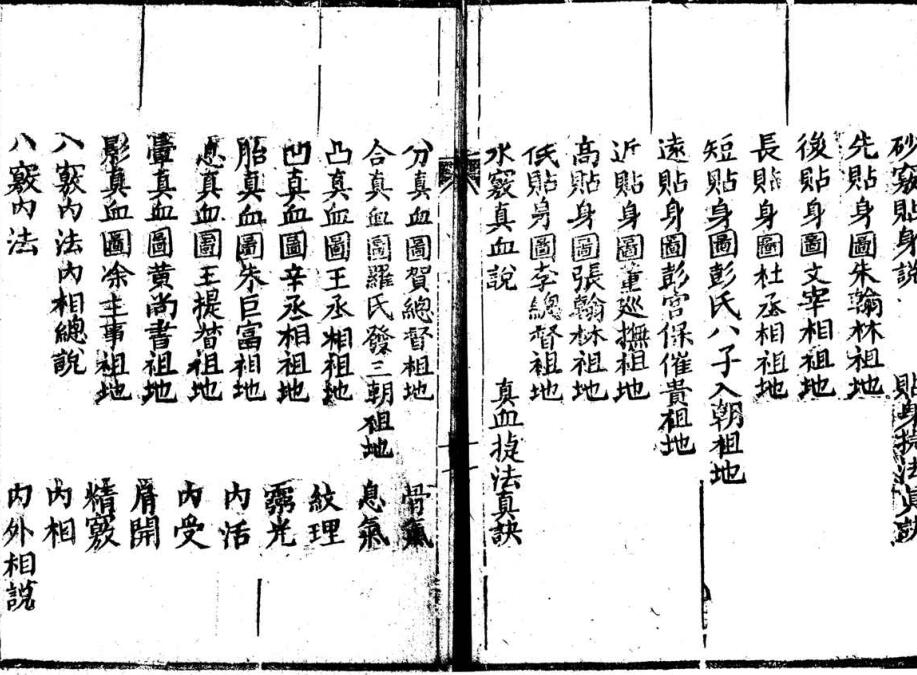 砂竅貼身說 貼身捷法真訣
先貼身圖朱翰林祖地
後貼身圖文宰相祖地
長貼身圖杜丞相祖地
短貼身圖彭氏八子入朝祖地
遠貼身圖彭宮保催貴祖地
近貼身圖董巡撫祖地
高貼身圖張翰林祖地
低貼身圖李總督祖地
水竅真血說 真血捷法真訣
分真血圖賀總督祖地 骨氣
合真血圖羅氏發三朝祖地 息氣
凸真血圖王丞相祖地 紋理
凹真血圖辛丞相祖地 霧光
胎真血圖朱巨富祖地 內活
息真血圖王提督祖地 內受
暈真血圖黃尚書祖地 開
影真血圖余主事祖地 精竅
八竅內法內相總說 內相
八竅內法 內外相說